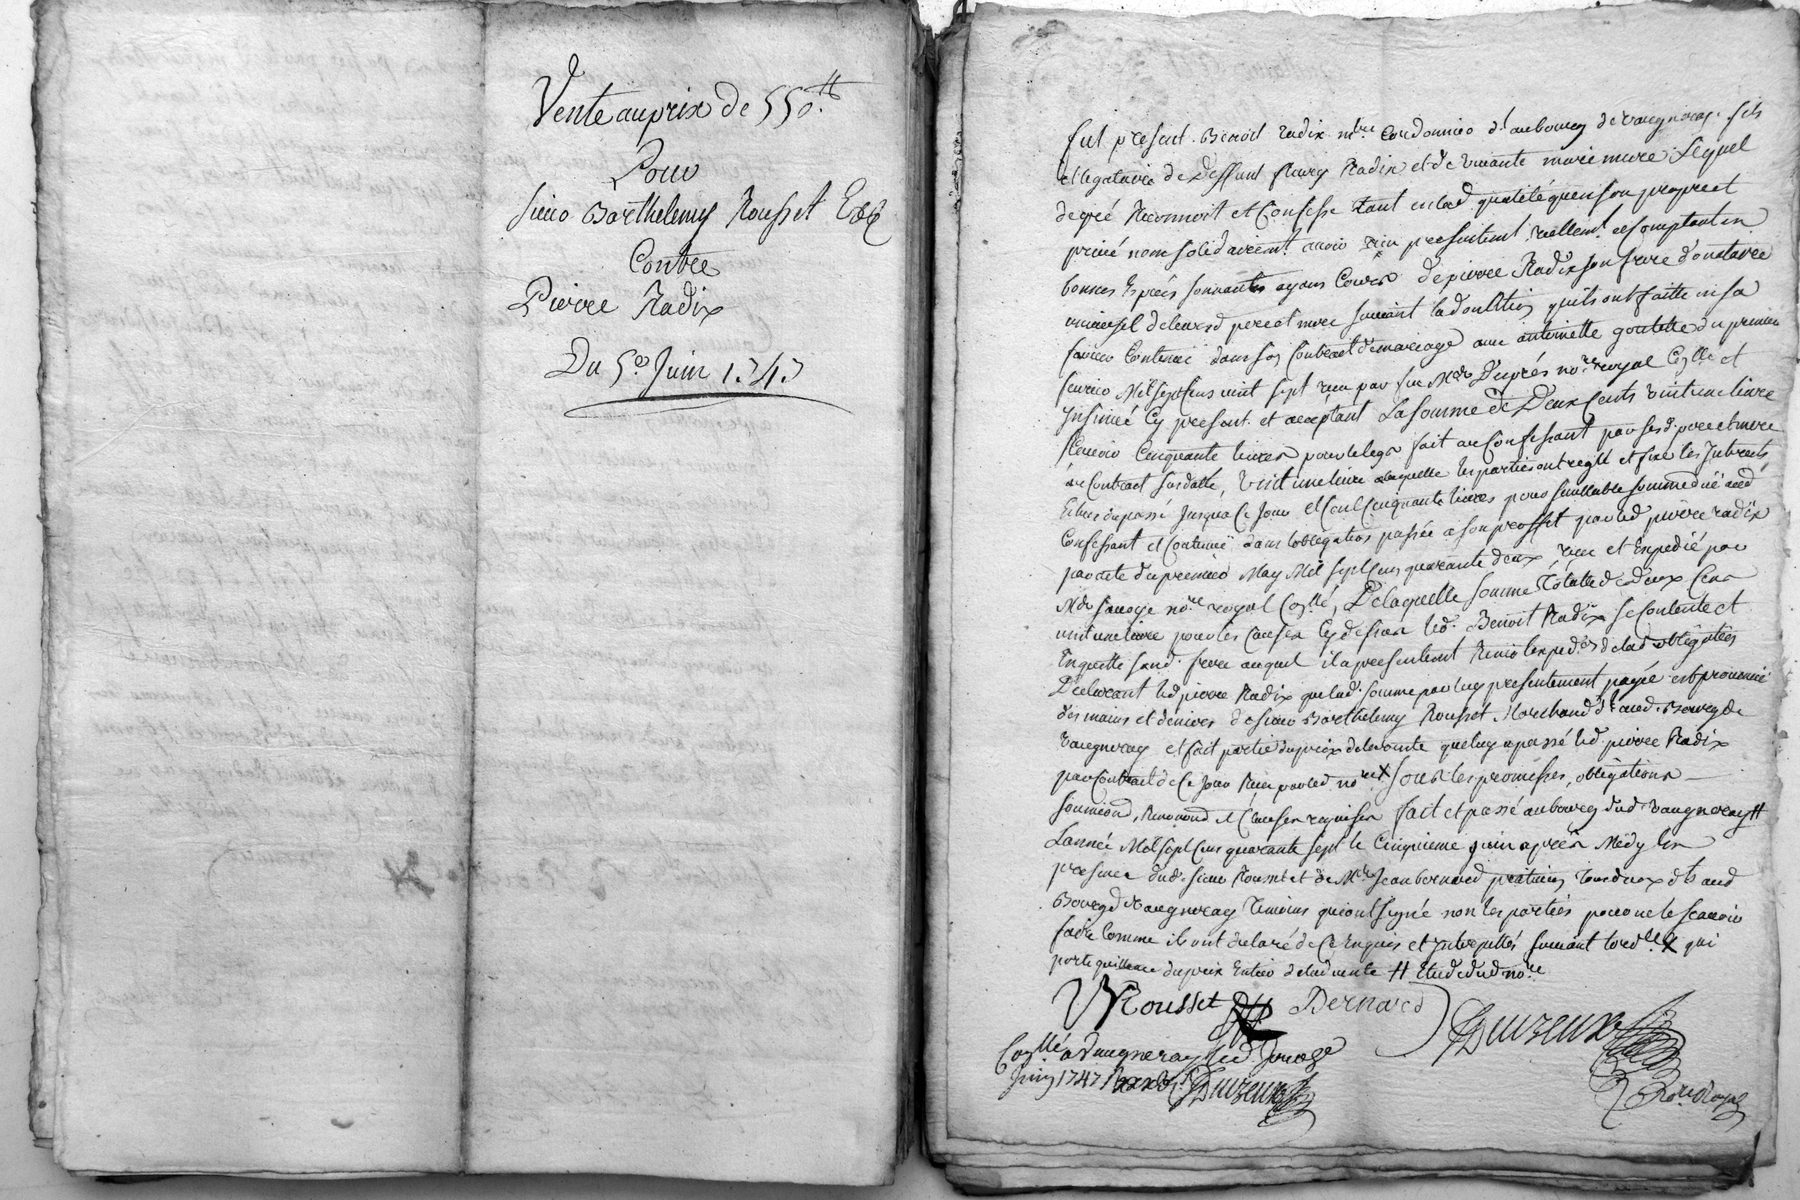 Vente au prix de 550.ᵗᵗ
Pour
Sieur Barthelemy Rousset
Contre
Pierre Radix
Du 5.ᵉ Juin 1747
fut present Benoit Radix mʳᵉ Cordonnier dᵗ au bourg de vaugneray fils
et legataire de deffunt fleury Radix et de vivante marie mure Lequel
de gré Reconnoit et Confesse tant en lad qualité qu'en son propre et
privé nom solidairemᵗ avoir reçu presentemᵗ reellemᵗ et Comptant en
bonnes Espèces sonnantes ayans Cours de pierre Radix son frere donataire
universel de leursd pere et mere suivant la donation qu'ils ont faitte en sa
faveur Contenue dans son Contract de mariage avec antoinette goutette du premier
fevrier Mil sept Cens vint sept reçu par feu Mᵉ Duprés noʳᵉ royal Cy et
Insinué Cy present et acceptant La somme de Deux Cents vint une livre
scavoir Cinquante livres pour le legs fait au Confessant par sesd pere et mere
au Contract susdatté, vint une livre a laquelle les parties ont reglé et fixé les Interets
Echus du passé Jusqua Ce Jour et Cent Cinquante livres pour semblable somme düe aud
Confessant et Contenüe dans lobligation passée a son proffit par led pierre radix
par acte du premier May Mil sept Cens quarante deux reçu et Expedié par
Mᵉ sauage noʳᵉ royal Coʳˡˡé, De laquelle somme Totalle de deux Cens
vint une livre pour les Causes Cy dessus led. Benoit Radix se Contente et
En quitte sond. frere auquel il a presentemᵗ Remis lexped.ᵒⁿ de lad obligation
Declarant led pierre Radix que lad. somme par luy presentement payée est provenüe
des mains et deniers de sieur Barthelemy Rousset Marchand dᵗ aud. Bourg de
vaugneray et fait partie du prix de la vente que luy a passé led. pierre Radix
par Contract de Ce Jour Reçu par led noʳᵉ X sous les promesses, obligations
soumiond, Renonond et Clauses requises fait et passé au bourg dud vaugneray #
Lannée Mil sept Cens quarante sept le Cinquieme juin après Midy En
presence dud. sieur Rousset et de Mᵉ Jean bernard praticien tous deux dᵗˢ aud
Bourg de vaugneray Temoins qui ont signé non les parties pour ne le scavoir
faire Comme ils ont declaré de Ce Enquis et Interpellés suivant lordˡᵉ X qui
porte quittance du prix Entier de lad vente # Etude dud noʳᵉ
Rousset Bernard
Duizeux
Coʳˡˡé a vaugneray
Juin 1747
Duizeux
Noʳᵉ Royal